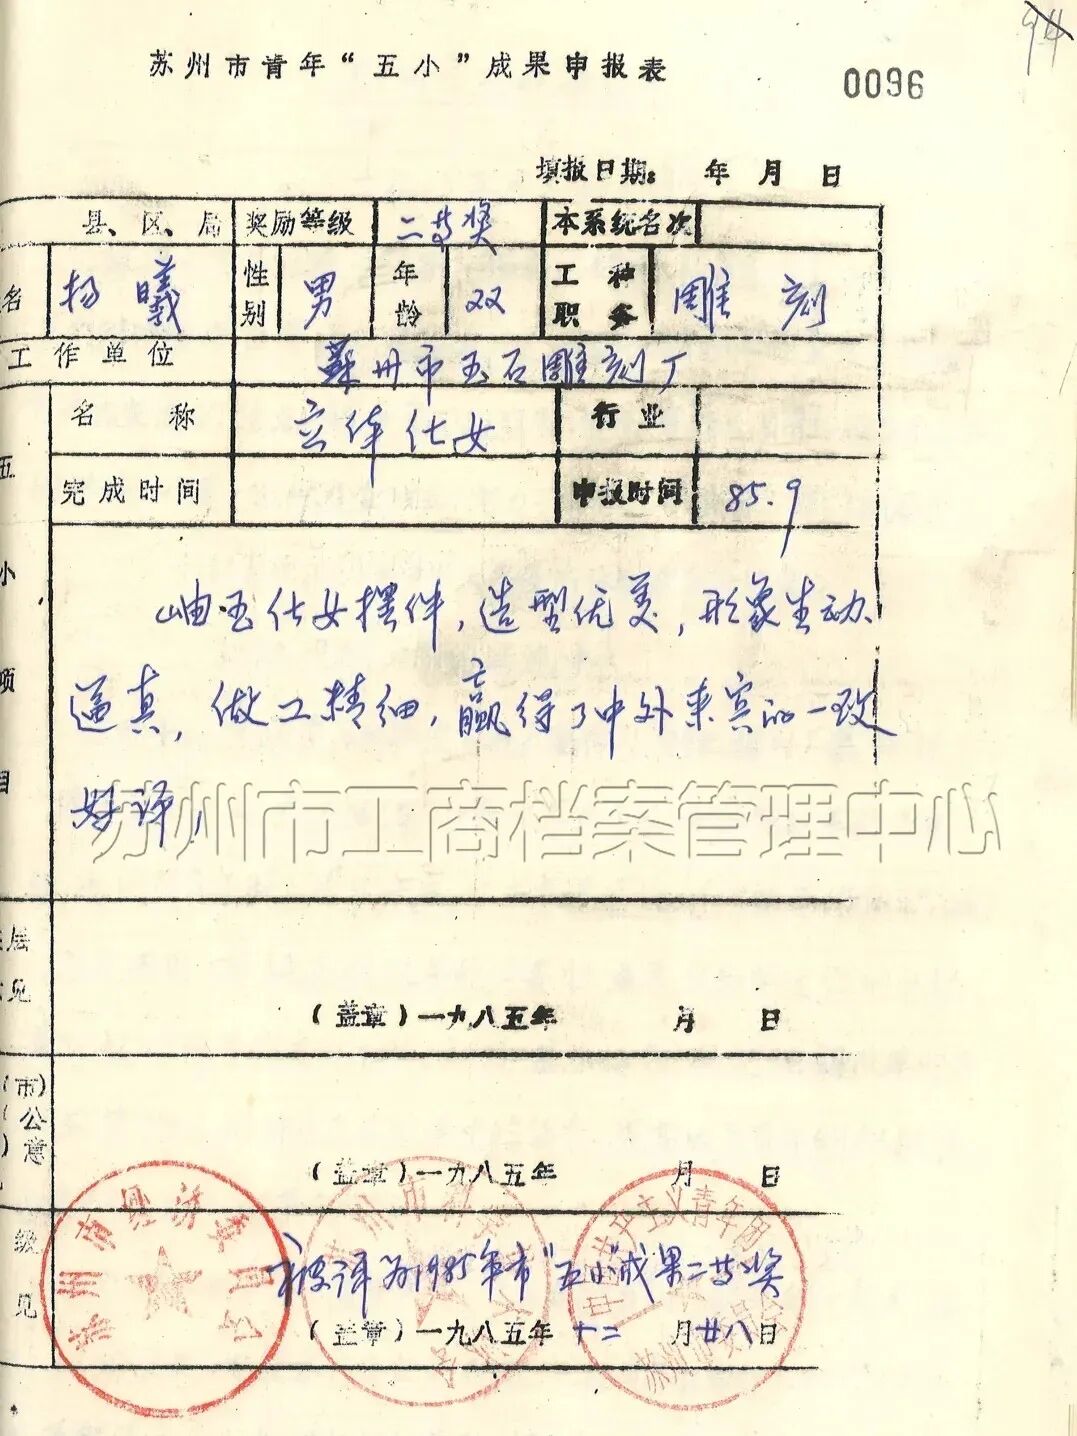 94
苏州市青年“五小”成果申报表
0096
填报日期： 年 月 日
县、区、局 奖励等级 二等奖 本系统名次
名 杨曦 性别 男 年龄 22 工种职务 雕刻
工作单位 苏州市玉石雕刻厂
五小项目 名称 立体仕女 行业
完成时间 申报时间 85.9
岫玉仕女摆件，造型优美，形象生动、
逼真，做工精细，赢得了中外来宾的一致
好评，
苏州市工商档案管理中心
层
见
（盖章）一九八五年 月 日
（市）
（公
）意
（盖章）一九八五年 月 日
级
见
被评为1985年市“五小”成果二等奖
（盖章）一九八五年 十二 月 廿八 日
苏州市经济委员会
苏州市科
中国共产主义青年团
苏州市委员会